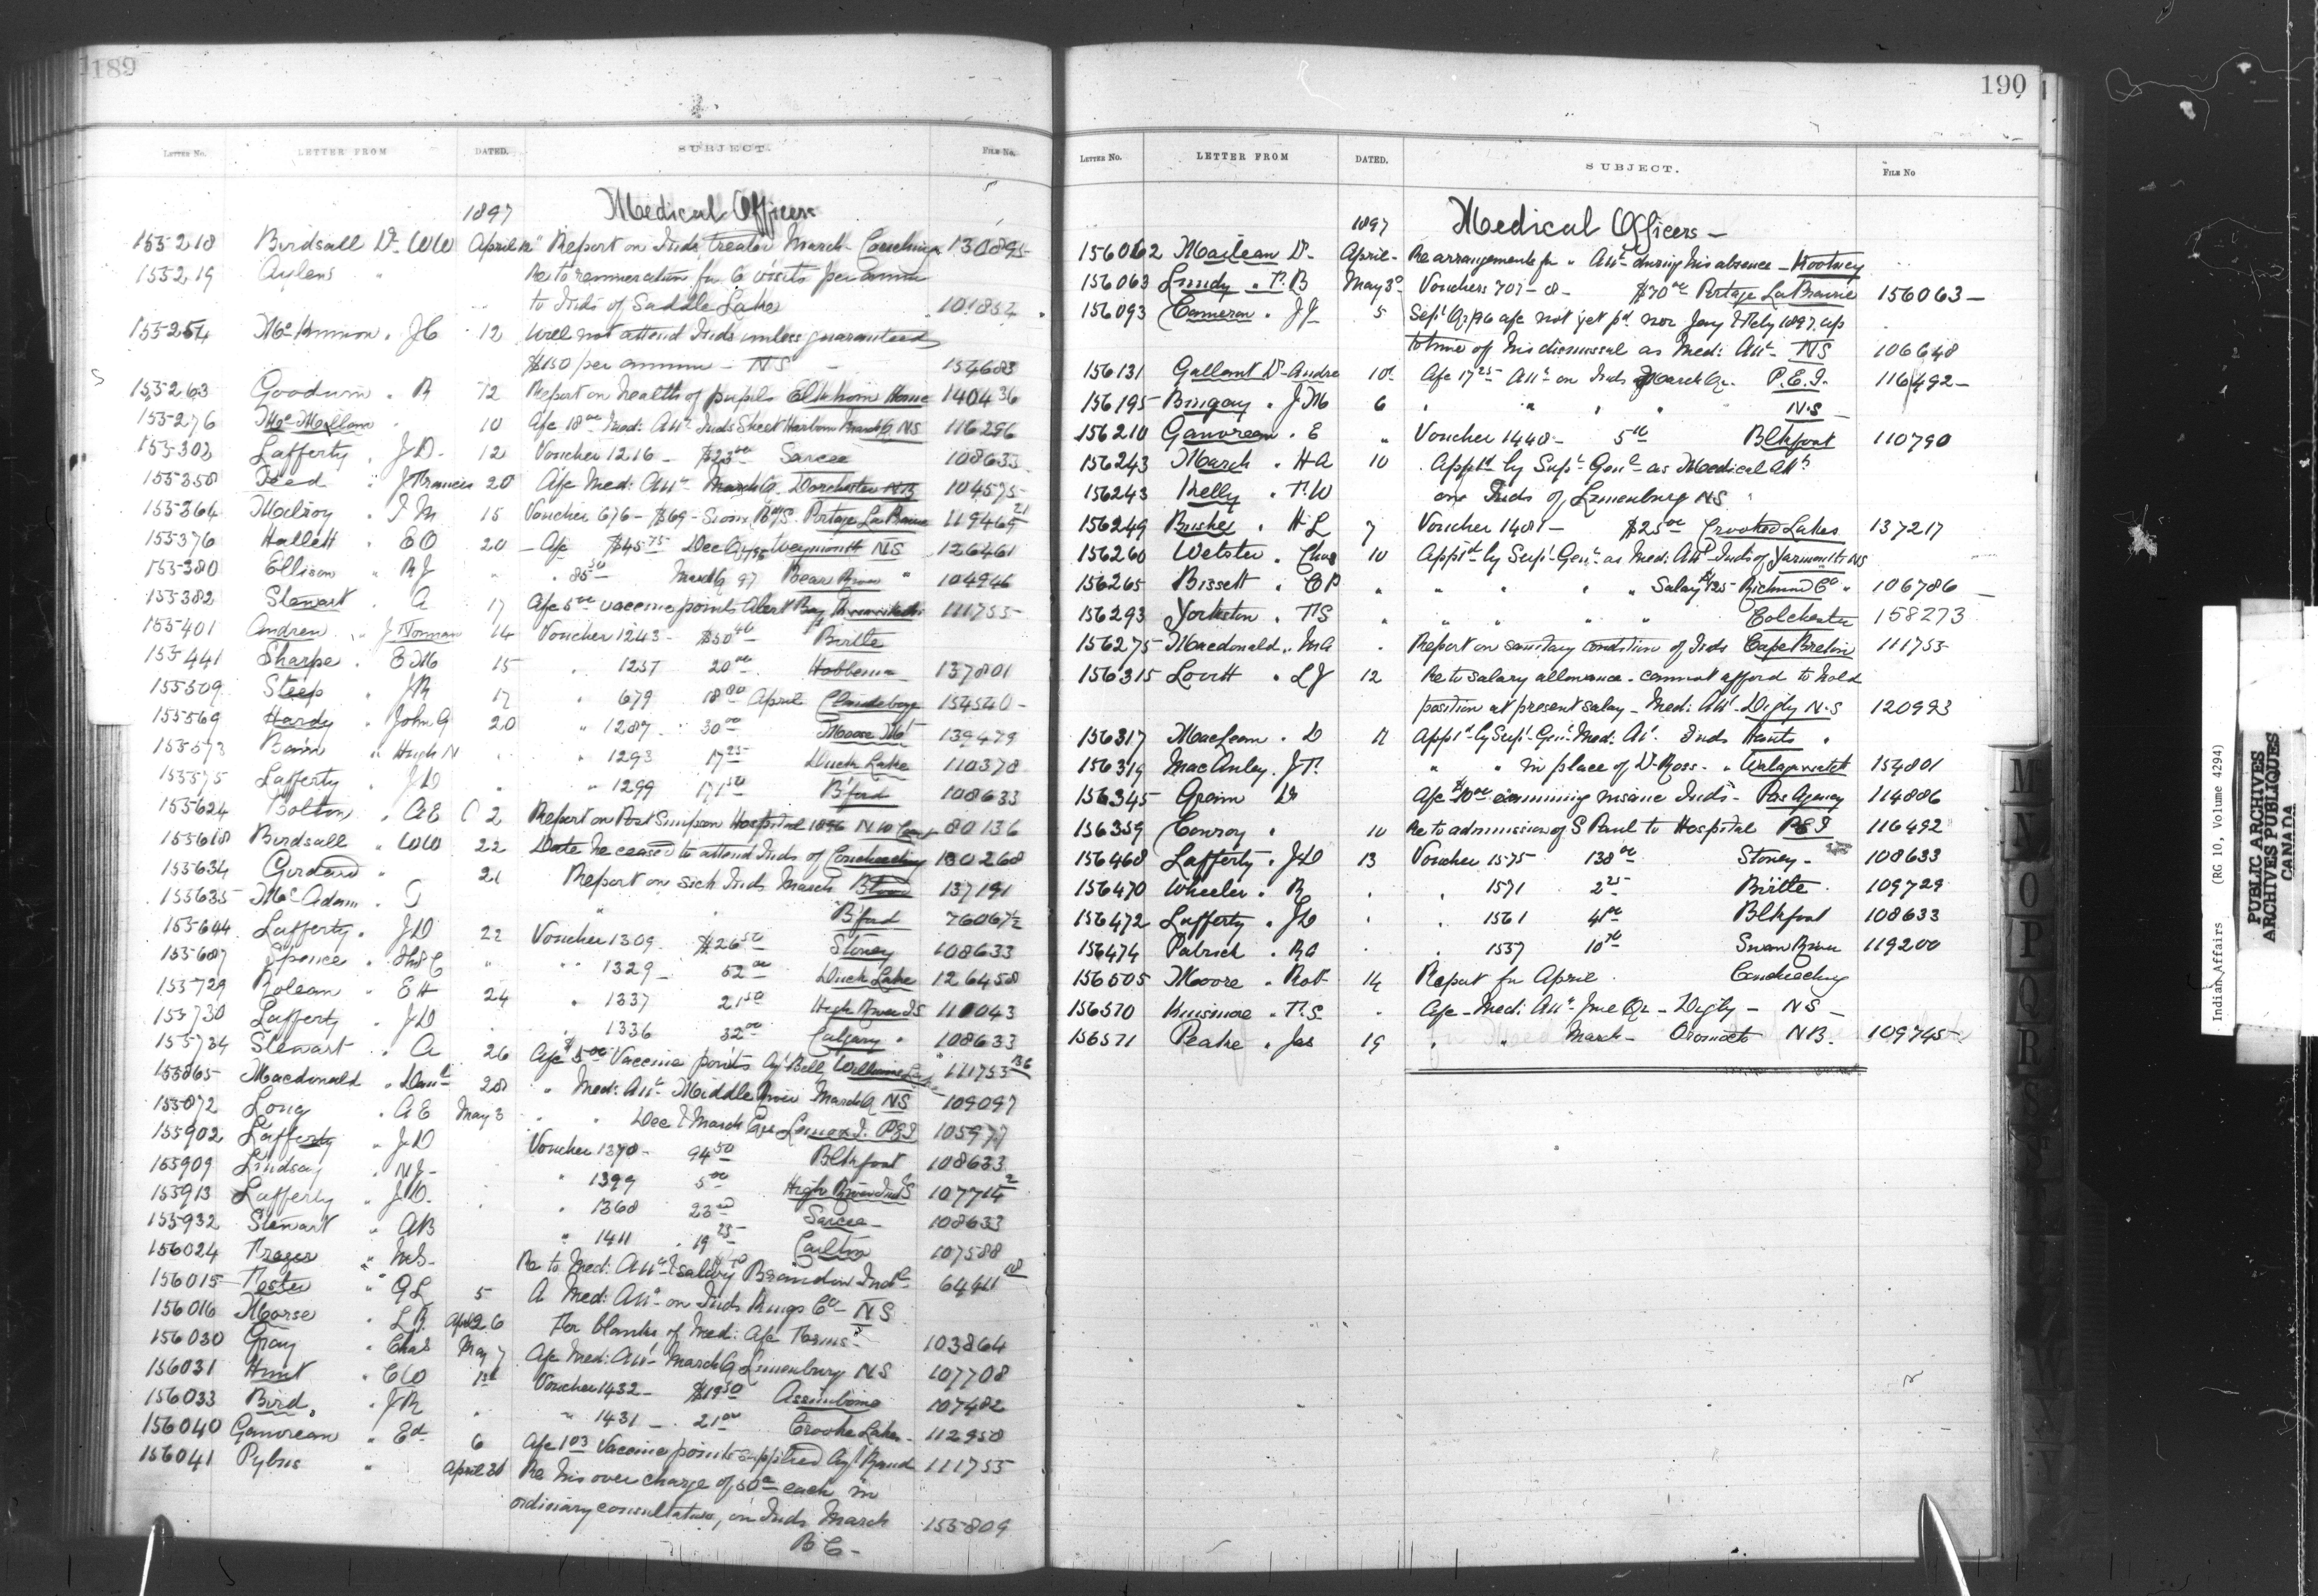 189
LETTER No. LETTER FROM DATED. SUBJECT. FILE No.
1897 Medical Officers
155218 Birdsall Dr WW April 12 Report on Inds treated March - Couchiching 130895
155219 Aylens " Re to remuneration for 6 visits per annum
to Inds of Saddle Lake 101852
155254 McKinnon " JC 12 Will not attend Inds unless guaranteed
$150 per annum - NS - 154683
155263 Goodwin " R 12 Report on health of pupils Elkhorn Home 140436
155276 McMillan " 10 A/c 18 00 Med: Attce Inds Sheet Harbour March Q NS 116296
155302 Lafferty " JD - 12 Voucher 1216 - $23 00 Sarcee 108633
155358 " J Francis 20 A/c Med: Attce March Q. Dorchester NB 104575
155364 Milroy " T M 15 Voucher 676 - $69 - Sioux B/S. Portage La Prairie 119469 21
155376 Hallett " E O 20 - A/c $45 75 Dec Q/96 Weymouth NS 126461
155380 Ellison " R J " " 85 50 March Q 97 Bear River " 104946
155382 Stewart " A 17 A/c 5 00 vaccine points Alert Bay 111755
155401 Andrew " J Norman 14 Voucher 1243 - $50 40 Birtle
155441 Sharpe " E M 15 " 1257 20 00 Hobbema 137801
155509 Steep " JR 17 " 679 18 80 April Clandeboye 154540 -
155569 Hardy " John G 20 " 1287 " 30 00 Moose Mt 139479
155573 Bain " Hugh N " " 1293 17 25 Duck Lake 110378
155575 Lafferty " JD " " 1299 171 50 B'ford 108633
155624 Bolton " AE 2 Report on Port Simpson Hospital 1896 N W Coast 80136
155618 Birdsall " WW 22 Date he ceased to attend Inds of Couchiching 130268
155634 Girdard " 21 Report on sick Inds March Blood 137191
155635 McAdam " " B'ford 76067½
155644 Lafferty " JD 22 Voucher 1309 $26 50 Stoney 108633
155687 Spence " " " 1329 - 52 00 Duck Lake 126458
155729 Rolean " E H 24 " 1337 21 50 High River IS 110043
155730 Lafferty " JD " " 1336 32 00 Calgary " 108633
155734 Stewart " A 26 A/c $5 00 Vaccine points Agt Bell Williams Lake 111755 136
155865 Macdonald " Danl 28 " Med: Attce Middle River March Q NS 109097
155872 Long " A E May 3 " " Dec & March Qrs Lennox I. PEI 105977
155902 Lafferty " JD Voucher 1370 - 94 50 Blkfoot 108633
155909 Lindsay " N J - " 1399 5 00 High River Ind S 107714 2
155913 Lafferty " JD. " 1368 23 00 Sarcee - 108633
155932 Stewart " AB " 1411 19 25 Carlton 107588
156024 Frazer " M S - Re to Med: Attce & salary Brandon Indl 64411 18
156015 Foster " G L 5 A Med: Attce on Inds Kings Co - NS
156016 Morse " L R. April 26 For blanks of Med: A/c Forms - 103864
156030 Gray " Chas May 7 A/c Med: Attce March Q Lunenburg NS 107708
156031 Hunt " E W 1st Voucher 1432 - $19 50 Assiniboine 107482
156033 Bird " JR " " 1431 - 21 00 Crooke Lakes - 112958
156040 Gauvreau " Ed 6 A/c 1 03 Vaccine points supplied Agt Rand 111755
156041 Pybus " April 21 Re his over charge of 50 c each in
ordinary consultations, on Inds March 155809
BC -
190
LETTER No. LETTER FROM DATED. SUBJECT. FILE No
1897 Medical Officers -
156062 Maclean Dr April - Re arrangements for " Attce during his absence - Kootenay
156063 Lundy " T. B May 3d Vouchers 707 - 8 - $70 00 Portage La Prairie 156063 -
156093 Cameron " JJ 5 Sept Qr/96 a/c not yet pd nor Jany & Feby 1897 up
to time of his dismissal as Med: Attce - NS 106648
156131 Gallant Dr Andre 10th A/c 17 25 Attce on Inds March Qr. P.E.I. 116492 -
156195 Bingay " J M 6 " " " " N.S -
156210 Gauvreau " E " Voucher 1440 - 5 00 Blkfoot 110790
156243 March " H A 10 Apptd by Supt Genl as Medical Att
156243 Kelly " T. W on Inds of Lunenburg NS "
156249 " H L 7 Voucher 1481 - $25 00 Crooked Lakes 137217
156260 Webster " Chas 10 Apptd by Supt Genl as Med: Att Inds of Yarmouth NS
156265 Bissett " C P " " " " " Salary $125 Richmond Co " 106786
156293 Yorkston " T. S " " " " " Colchester 158273
156275 Macdonald " M A " Report on sanitary condition of Inds Cape Breton 111755
156315 Lovitt " L J 12 Re to salary allowance - cannot afford to hold
position at present salary - Med: Att - Digby N.S 120993
156317 MacLean " D 11 Apptd by Supt Genl Med: At. Inds Hants "
156319 MacAuley. J T. " " in place of Dr Ross - " Walagwatch 154801
156345 Grain Dr A/c $10 00 examining insane Inds - Pas Agency 114886
156359 Conroy " 10 Re to admission of S Paul to Hospital PEI 116492
156468 Lafferty " JD 13 Voucher 1575 138 00 Stoney - 108633
156470 Wheeler " R " " 1571 2 25 Birtle 109729
156472 Lafferty " JD " " 1561 41 00 Blkfoot 108633
156474 Patrick " R O " " 1557 10 70 Swan River 119200
156505 Moore " Robt 14 Report for April Couchiching
156570 Kinsmore " T. S. " A/c - Med: Attce June Qr - Digby - NS -
156571 Peake " Jas 19 " " March - Oromocto NB - 109745
M
N
O
P
Q
R
S
Indian Affairs (RG 10, Volume 4294)
PUBLIC ARCHIVES
ARCHIVES PUBLIQUES
CANADA